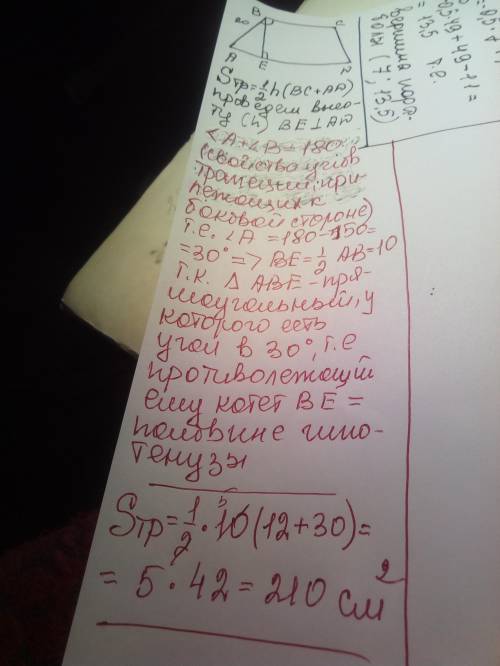 B C
20
A E
Sтр=1/2 h(BC+AD)
проведем высо-
ту (h) BE⊥AD
∠A+∠B=180
(свойства углов
трапеции, при-
лежащих к
боковой стороне)
т.е. ∠A = 180-150=
=30° => BE=1/2 AB=10
т.к. Δ ABE - пря-
моугольный, у
которого есть
угол в 30°, т.е
противолежащий
ему катет BE =
половине гипо-
тенузы
Sтр=1/2·10 5(12+30)=
= 5·42 = 210 см²
0549+49-11=
= 135 т.е.
вершина
(7; 13,5)